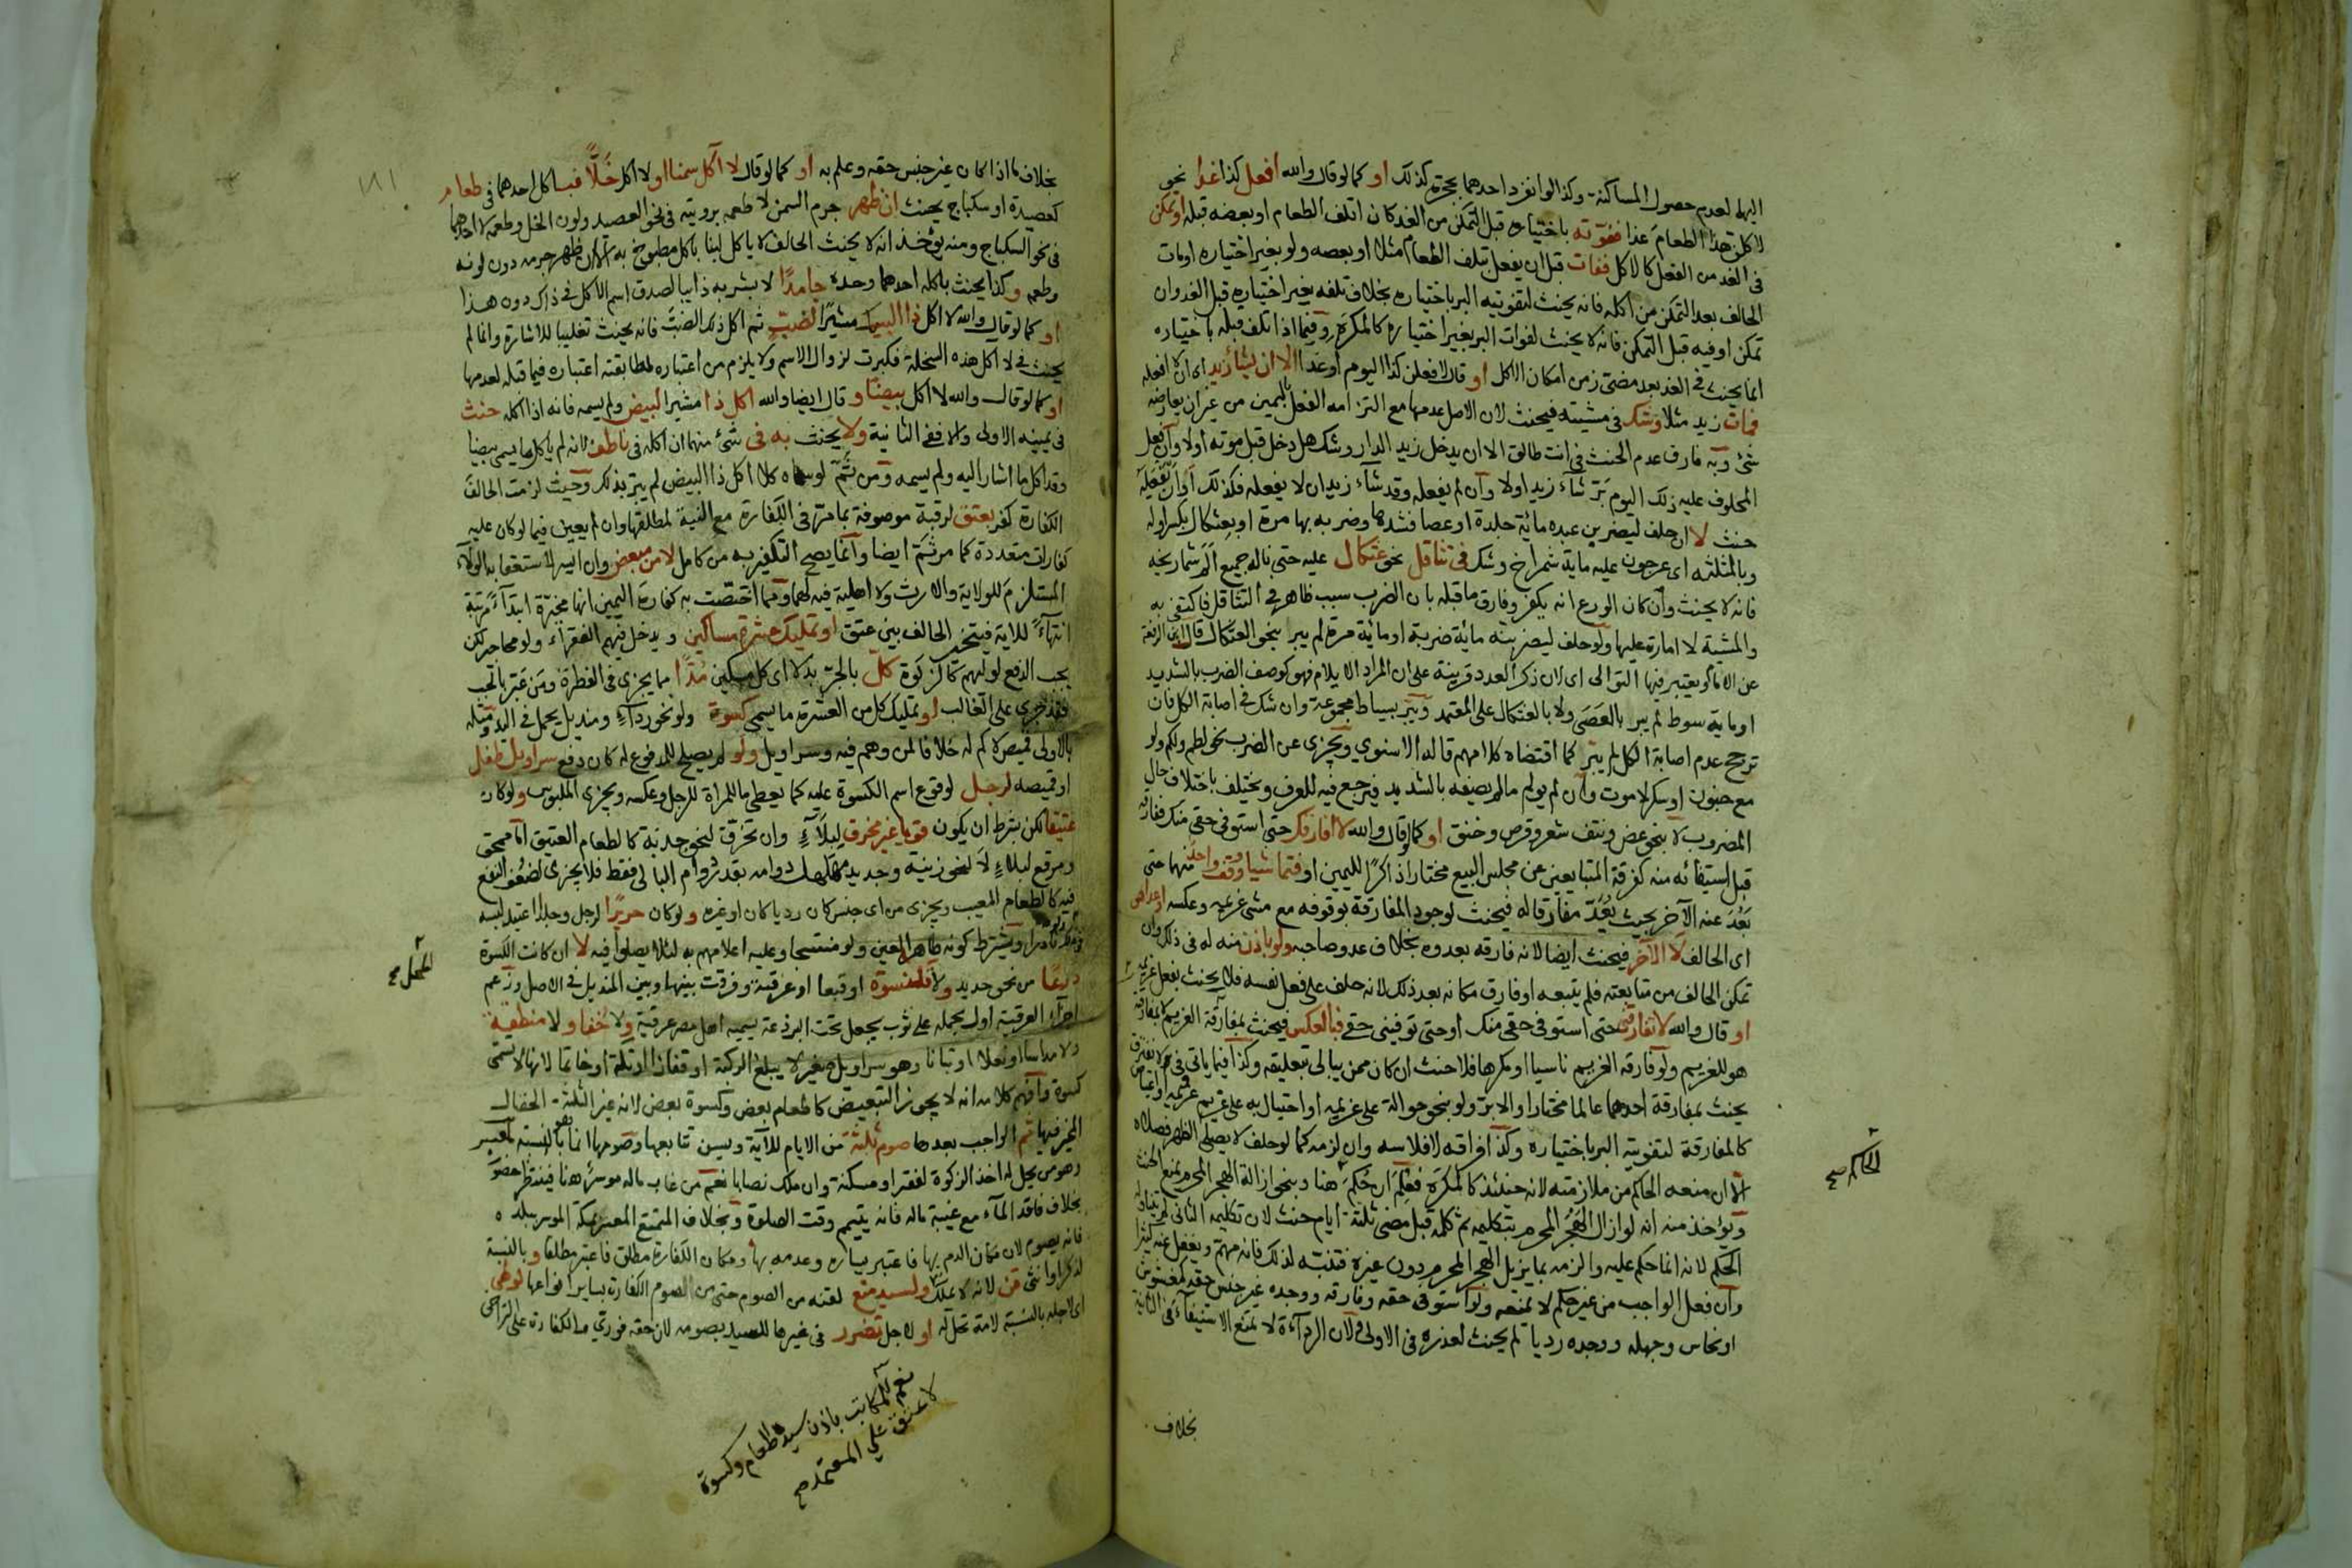 اليها لعدم حصول المساكنة وكذا لو انفرد احدهما بحجرة كذلك او كما لو قال والله افعل كذا غدا نحو
لاكلن هذا الطعام غدا ففوته باختياره قبل التمكن من الغد كان اتلف الطعام او بعضه قبله او تمكن
فى الغد من الفعل كالاكل ففات قبل ان يفعل بتلف الطعام مثلا او بعضه ولو بغير اختياره او مات
الحالف بعد التمكن من اكله فانه يحنث لتفويته البر باختياره بخلاف تلفه بغير اختياره قبل الغد وان
تمكن او فيه قبل التمكن فانه لا يحنث لفوات البر بغير اختياره كالمكره وفيما اذا تلف قبله باختياره
انما يحنث فى الغد بعد مضى زمن امكان الاكل او قال لافعلن كذا اليوم او غدا الا ان يشا زيد اى ان لا افعله
فمات زيد مثلا وشك فى مشيته فيحنث لان الاصل عدمها مع التزامه الفعل باليمين من غير ان يعارضه
شئ وبه فارق عدم الحنث فى انت طالق الا ان يدخل زيد الدار وشك هل دخل قبل موته اولا وان فعل
المحلوف عليه ذلك اليوم بر شاء زيد اولا وان لم يفعله وقد شاء زيد ان لا يفعله فكذلك او ان يفعله
حنث لا ان حلف ليضربن عبده مائة جلدة او عصا فشدها وضربه بها مرة او بعثكال بكسر اوله
وبالمثلثة اى عرجون عليه ماية شمراخ وشك فى تثاقل نحو عثكال عليه حتى ناله جميع الم شماريخه
فانه لا يحنث وان كان الورع انه يكفر وفارق ما قبله بان الضرب سبب ظاهر فى التثاقل فاكتفى به
والمشية لا امارة عليها ولو حلف ليضربنه مائة ضربة او مائة مرة لم يبر بنحو العثكال قال ابن الرفعة
عن الامام ويعتبر فيها التوالى اى لان ذكر العدد قرينة على ان المراد الايلام فهو كوصف الضرب بالشديد
او ماية سوط لم يبر بالعصى ولا بالعثكال على المعتمد ويبر بسياط مجموعة وان شك فى اصابة الكل فان
ترجح عدم اصابة الكل لم يبر كما اقتضاه كلامهم قاله الاسنوي ويجزى عن الضرب نحو لطم ولكم ولو
مع جنون او سكر لا موت وان لم يولم ما لم يصفه بالشديد فيرجع فيه للعرف ويختلف باختلاف حال
المضروب لا بنحو عض ونتف شعر وقرص وخنق او كما لو قال والله لا افارقك حتى استوفى حقى منك ففارقه
قبل استيفائه منه كفرقة المتبايعين عن مجلس البيع مختارا ذاكرا لليمين او فتماشيا ووقف واحد منهما حتى
بعد عنه الآخر بحيث يعد مفارقا له فيحنث لوجود المفارقة بوقوفه مع مشى غريمه وعكسه او عدا هو
اى الحالف لا الآخر فيحنث ايضا لانه فارقه بعدوه بخلاف عدو صاحبه ولو باذن منه له فى ذلك وان
تمكن الحالف من متابعته فلم يتبعه او فارق مكانه بعد ذلك لانه حلف على فعل نفسه فلا يحنث بفعل غريمه
او قال والله لا تفارقنى حتى استوفى حقى منك او حتى توفينى حقى فبالعكس فيحنث بمفارقة الغريم لا بمفارقة
هو للغريم ولو فارقه الغريم ناسيا او مكرها فلا حنث ان كان ممن يبالى بتعليقه وكذا فيما ياتى فى لا نفترق
يحنث بمفارقة احدهما عالما مختارا والابرا ولو بنحو حوالة على غريمه او احتيال به على غريم غريمه او اعتياض
كالمفارقة لتفويته البر باختياره وكذا فراقه لافلاسه وان لزمه كما لو حلف لا يصلى الظهر فصلاه
الا ان منعه الحاكم من ملازمته لانه حينئذ كالمكره فعلم ان حكم هنا وبنحو ازالة الهجر المحرم يمنع الحنث
ويؤخذ منه انه لو ازال الهجر المحرم بتكليمه ثم كلمه قبل مضى ثلثة ايام حنث لان تكليمه الثانى لم يتناوله
الحكم لانه انما حكم عليه والزمه بما يزيل الهجر المحرم دون غيره فتنبه لذلك فانه مهم ويغفل عنه كثيرا
وان فعل الواجب من غير حكم لا يمنعه ولو استوفى حقه وفارقه ووجده غير جنس حقه كمغشوش
او نحاس وجهله ووجده رديا لم يحنث لعذره فى الاولى ولان الرداءة لا تمنع الاستيفاء فى الثانية
بخلاف
الحاكم صح
١٨١
بخلاف ما اذا كان غير جنس حقه وعلم به او كما لو قال لا آكل سمنا او لا اكل خلا فباكل احدهما فى طعام
كعصيدة او سكباج يحنث ان ظهر جرم السمن لا طعمه برويته فى نحو العصيد ولون الخل وطعمه لا احدهما
فى نحو السكباج ومنه يؤخذ انه لا يحنث الحالف لا ياكل لبنا باكل مطبوخ به الا ان ظهر جرمه دون لونه
وطعمه وكذا يحنث باكله احدهما وحده جامدا لا بشربه ذايبا لصدق اسم الاكل فى ذاك دون هذا
او كما لو قال والله لا اكل ذا السمك مشيرا لضب ثم اكل ذلك الضب فانه يحنث تغليبا للاشارة وانما لم
يحنث فى لا اكل هذه السخلة فكبرت لزوال الاسم ولا يلزم من اعتبار مطابقته اعتباره فيما قبله لعدمها
او كما لو قال والله لا اكل بيضا وقال ايضا والله اكل ذا مشيرا لبيض ولم يسمه فانه اذا اكله حنث
فى يمينه الاولى والا ففى الثانية ولا يحنث به فى شئ منهما ان اكله فى ناطف لانه لم ياكل ما يسمى بيضا
وقد اكل ما اشار اليه ولم يسمه ومن ثم لو سماه كلا اكل ذا البيض لم يبر بذلك وحيث لزمت الحالف
الكفارة كفر بعتق لرقبة موصوفة بما مر فى الكفارة مع النية لمطلقها وان لم يعين فيما لو كان عليه
كفارات متعددة كما مر ثم ايضا وانما يصح التكفير به من كامل لا من مبعض وان ايسر لاستعقابه الولاء
المستلزم للولاية والارث ولا اهلية فيه لهما ومما اختصت به كفارة اليمين انها مخيرة ابتداء مرتبة
انتهاء للاية فيتخير الحالف بين عتق او تمليك عشرة مساكين ويدخل فيهم الفقراء ولو محاجير لكن
يجب الدفع لوليهم كالزكوة كل بالجر بدلا اى كل مسكين مدا مما يجزى فى الفطرة ومن عبر بانجب
فقد جرى على الغالب او تمليك كل من العشرة ما يسمى كسوة ولو نحو رداء ومنديل يحمل فى اليد ومثله
بالاولى قميص لا كم له خلافا لمن وهم فيه وسراويل ولو لم يصلح للمدفوع له كان دفع سراويل طفل
او قميصه لرجل لوقوع اسم الكسوة عليه كما يعطى ما للمراة للرجل وعكسه ويجزى الملبوس ولو كان
عتيقا لكن بشرط ان يكون قويا غير مخرق لبلاء وان تخرق لنحو جذبة كالطعام العتيق اما ممحق
ومرقع لبلاء لا لنحو زينة وجديد مهلهل دوامه بقدر دوام البالى فقط فلا يجزى لضعف النفع
فيه كالطعام المعيب ويجزى من اى جنس كان رديا كان او غيره ولو كان حريرا لرجل وجلدا اعتيد لبسه
نادرا ويشترط كونه طاهر العين ولو متنجسا وعليه اعلامهم به لئلا يصلوا فيه لا ان كانت الكسوة
درعا من نحو حديد ولا قلنسوة او قبعا او عرقية وفرقت بينها وبين المنديل فى الاصل وزعم
اجزاء العرقية اول بحمله على ثوب يجعل تحت البرذعة يسميه اهل مصر عرقية ولا خفا ولا منطقة
ولا مداسا او نعلا او تبانا وهو سراويل صغير لا يبلغ الركبة او قفازا او تكة او خاتما لانها لا تسمى
كسوة وافهم كلامه انه لا يجوز التبعيض كاطعام بعض وكسوة بعض لانه غير الثلثة الخصال
المخير فيها ثم الواجب بعدها صوم ثلثة من الايام للآية ويسن تتابعها وصومها انما هو بالنسبة لمعسر
وهو من يحل له اخذ الزكوة لفقر او مسكنة وان ملك نصابا نعم من غاب ماله موسر هنا فينتظر حضوره
بخلاف فاقد الماء مع غيبة ماله فانه يتيمم وقت الصلوة وبخلاف المتمتع المعسر بمكة الموسر ببلده
فانه يصوم لان مكان الدم بها فاعتبر يساره وعدمه بها ومكان الكفارة مطلق فاعتبر مطلقا وبالنسبة
لذكر او انثى قن لانه لا يملك ولسيد منع لقنه من الصوم حتى من الصوم الكفارة بساير انواعها لوطى
اى لاجله بالنسبة لامة تحل له او لاجل تضرر فى غيرها للسيد بصومه لان حقه فورى والكفارة على التراخى
نعم لمكاتب باذن سيده طعام وكسوة
لا عتق على المعتمد صح